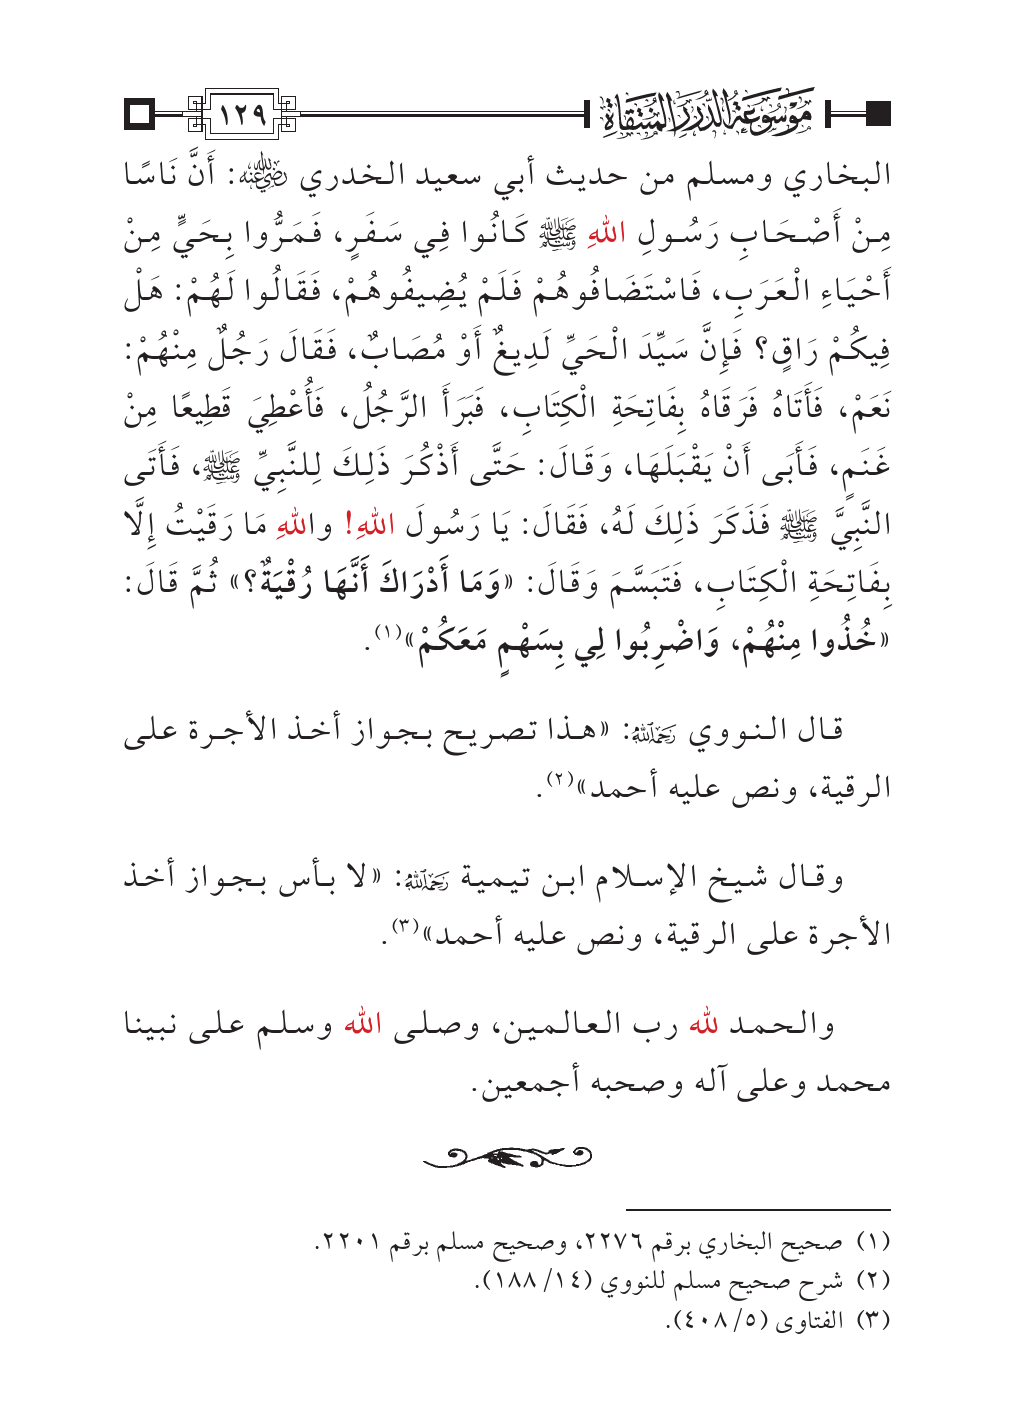 موسوعة الدرر المنتقاة
١٢٩
البخاري ومسلم من حديث أبي سعيد الخدري رضي الله عنه: أَنَّ نَاسًا
مِنْ أَصْحَابِ رَسُولِ اللهِ ﷺ كَانُوا فِي سَفَرٍ، فَمَرُّوا بِحَيٍّ مِنْ
أَحْيَاءِ الْعَرَبِ، فَاسْتَضَافُوهُمْ فَلَمْ يُضِيفُوهُمْ، فَقَالُوا لَهُمْ: هَلْ
فِيكُمْ رَاقٍ؟ فَإِنَّ سَيِّدَ الْحَيِّ لَدِيغٌ أَوْ مُصَابٌ، فَقَالَ رَجُلٌ مِنْهُمْ:
نَعَمْ، فَأَتَاهُ فَرَقَاهُ بِفَاتِحَةِ الْكِتَابِ، فَبَرَأَ الرَّجُلُ، فَأُعْطِيَ قَطِيعًا مِنْ
غَنَمٍ، فَأَبَى أَنْ يَقْبَلَهَا، وَقَالَ: حَتَّى أَذْكُرَ ذَلِكَ لِلنَّبِيِّ ﷺ، فَأَتَى
النَّبِيَّ ﷺ فَذَكَرَ ذَلِكَ لَهُ، فَقَالَ: يَا رَسُولَ اللهِ! واللهِ مَا رَقَيْتُ إِلَّا
بِفَاتِحَةِ الْكِتَابِ، فَتَبَسَّمَ وَقَالَ: «وَمَا أَدْرَاكَ أَنَّهَا رُقْيَةٌ؟» ثُمَّ قَالَ:
«خُذُوا مِنْهُمْ، وَاضْرِبُوا لِي بِسَهْمٍ مَعَكُمْ»(١).
قال النووي رحمه الله: «هذا تصريح بجواز أخذ الأجرة على
الرقية، ونص عليه أحمد»(٢).
وقال شيخ الإسلام ابن تيمية رحمه الله: «لا بأس بجواز أخذ
الأجرة على الرقية، ونص عليه أحمد»(٣).
والحمد لله رب العالمين، وصلى الله وسلم على نبينا
محمد وعلى آله وصحبه أجمعين.
(١) صحيح البخاري برقم ٢٢٧٦، وصحيح مسلم برقم ٢٢٠١.
(٢) شرح صحيح مسلم للنووي (١٤/ ١٨٨).
(٣) الفتاوى (٥/ ٤٠٨).